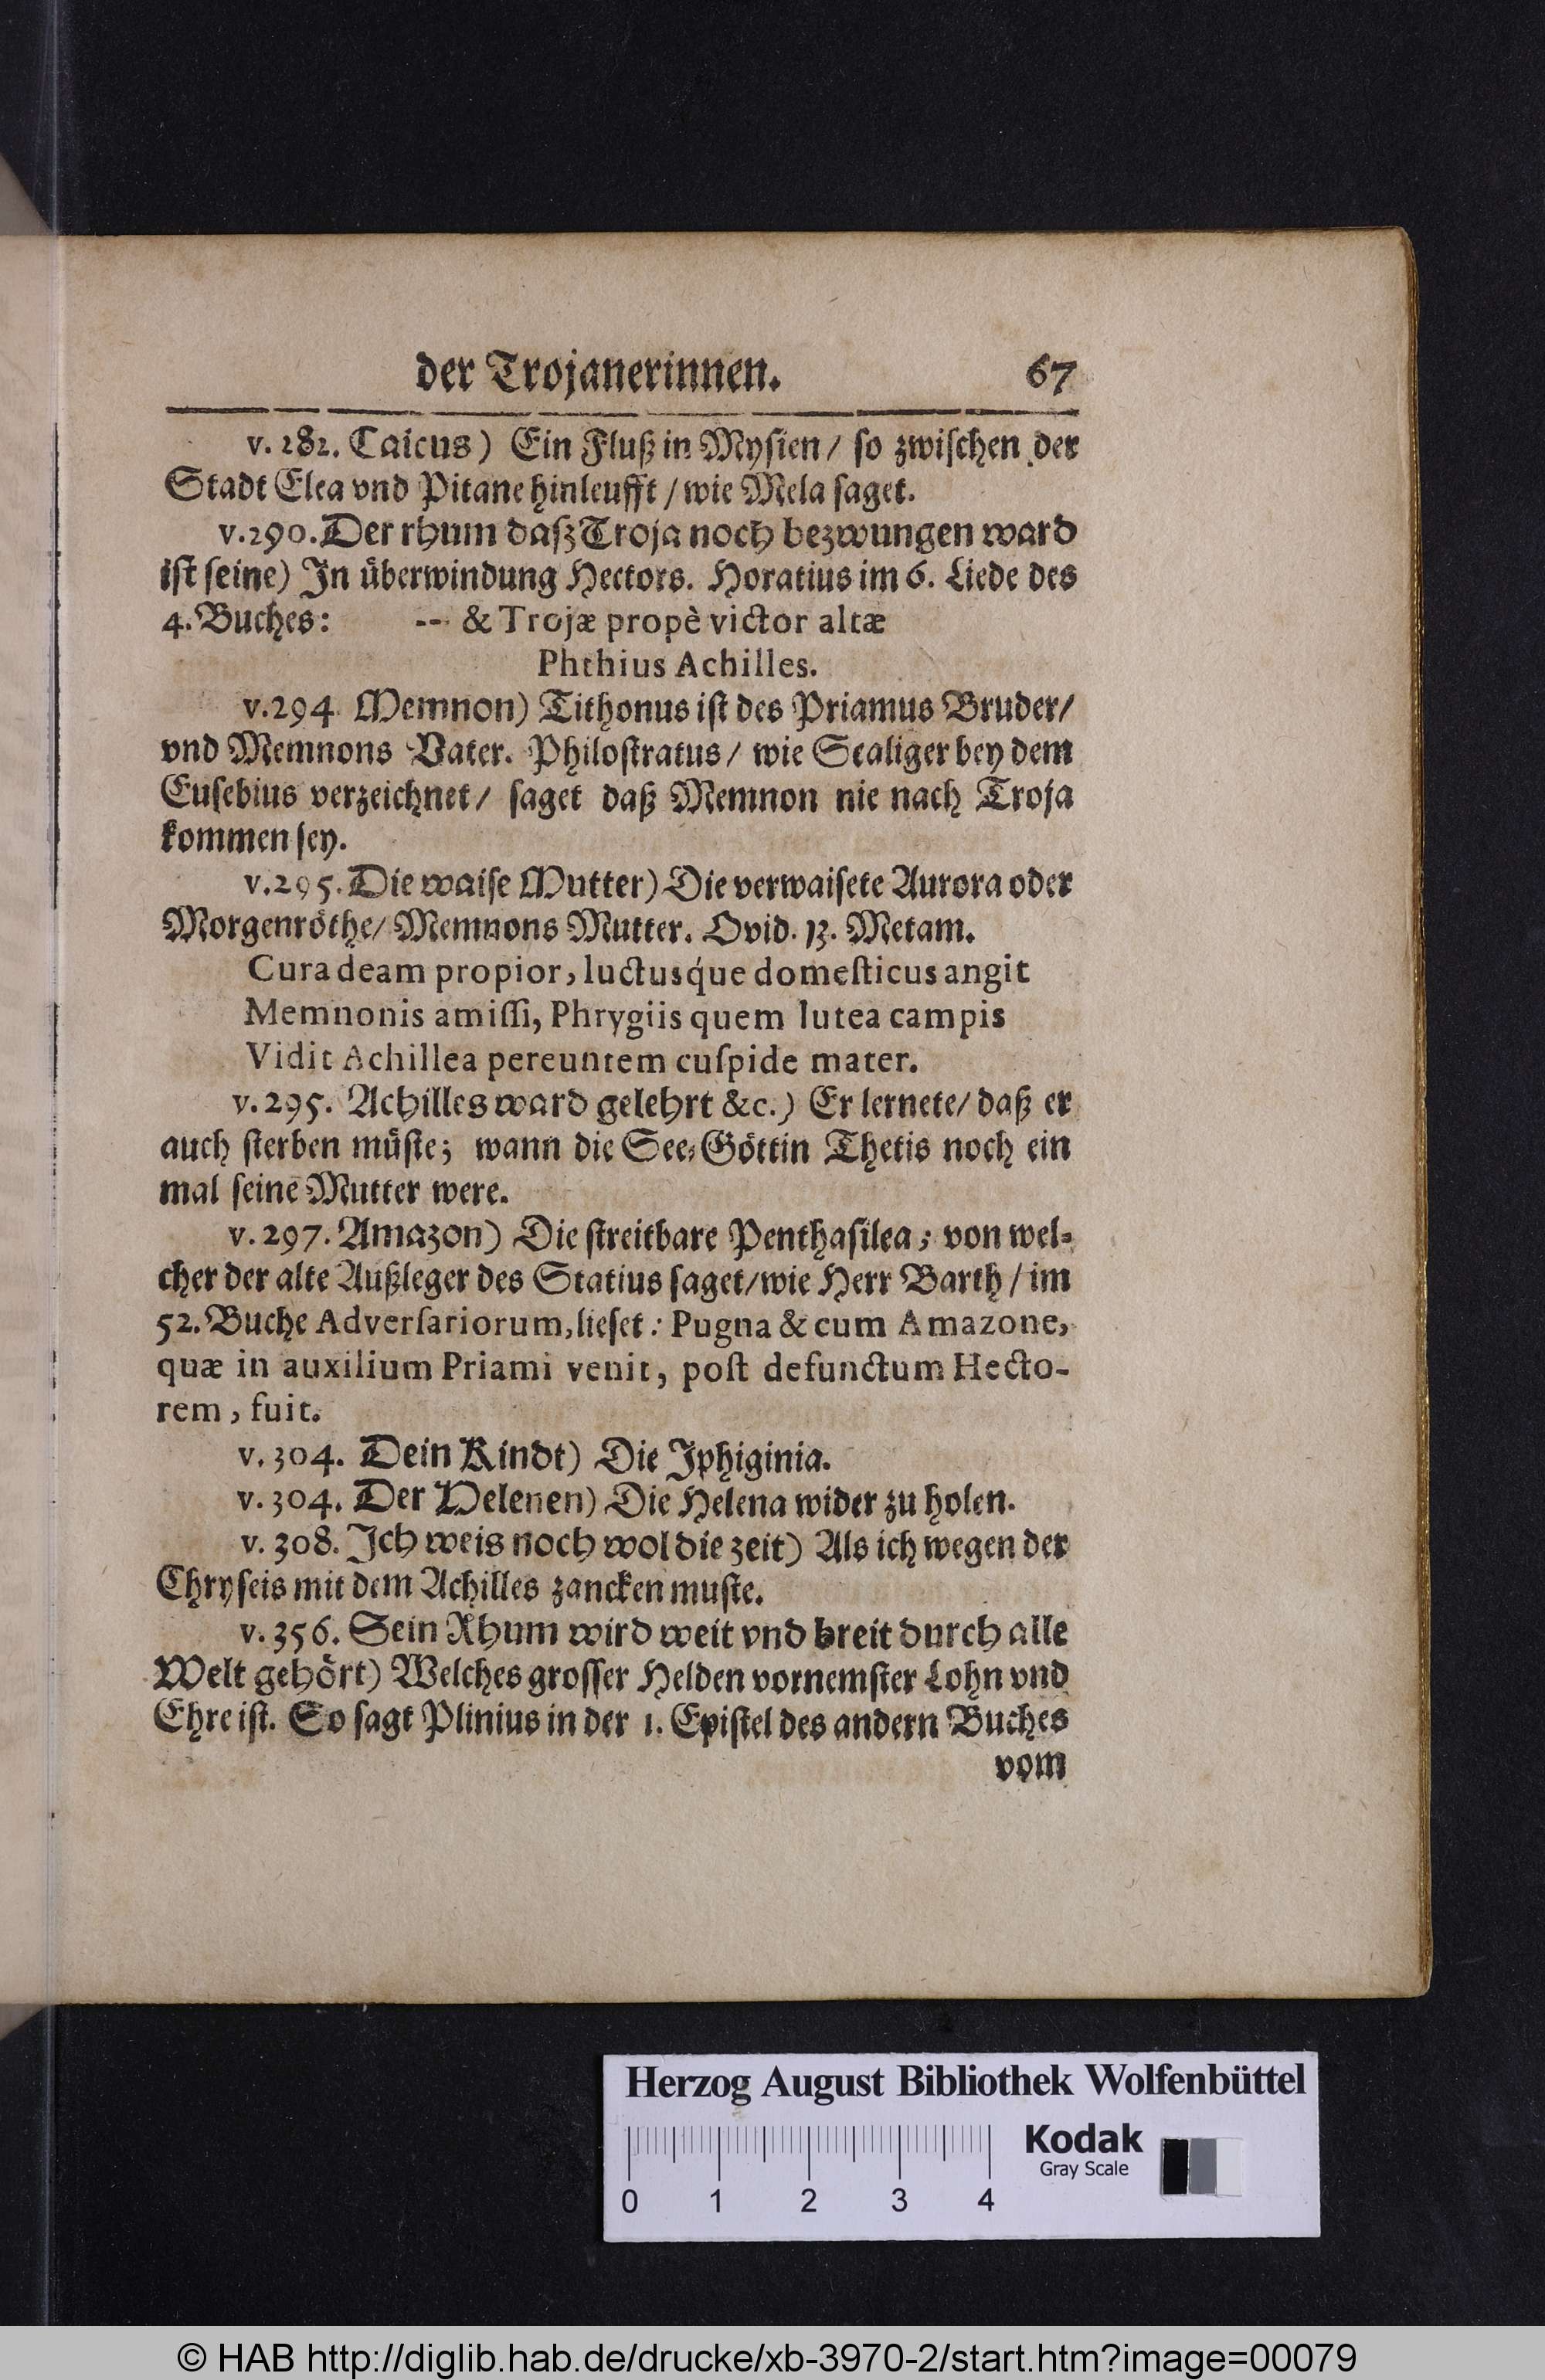 der Trojanerinnen. 67
v. 282. Caicus) Ein Fluß in Mysien / so zwischen der
Stadt Elea vnd Pitane hinleufft / wie Mela saget.
v. 290. Der rhum dasz Troja noch bezwungen ward
ist seine) In überwindung Hectors. Horatius im 6. Liede des
4. Buches: -- & Trojæ propè victor altæ
Phthius Achilles.
v. 294. Memnon) Tithonus ist des Priamus Bruder/
vnd Memnons Vater. Philostratus / wie Scaliger bey dem
Eusebius verzeichnet / saget daß Memnon nie nach Troja
kommen sey.
v. 295. Die waise Mutter) Die verwaisete Aurora oder
Morgenröthe / Memnons Mutter. Ovid. 13. Metam.
Cura deam propior, luctusq́ue domesticus angit
Memnonis amissi, Phrygiis quem lutea campis
Vidit Achillea pereuntem cuspide mater.
v. 295. Achilles ward gelehrt &c.) Er lernete / daß er
auch sterben müste; wann die See-Göttin Thetis noch ein
mal seine Mutter were.
v. 297. Amazon) Die streitbare Penthasilea; von wel-
cher der alte Außleger des Statius saget / wie Herr Barth / im
52. Buche Adversariorum, lieset: Pugna & cum Amazone,
quæ in auxilium Priami venit, post defunctum Hecto-
rem, fuit.
v. 304. Dein Kindt) Die Iphiginia.
v. 304. Der Helenen) Die Helena wider zu holen.
v. 308. Ich weis noch wol die zeit) Als ich wegen der
Chryseis mit dem Achilles zancken muste.
v. 356. Sein Rhum wird weit vnd breit durch alle
Welt gehört) Welches grosser Helden vornemster Lohn vnd
Ehre ist. So sagt Plinius in der 1. Epistel des andern Buches
vom
Herzog August Bibliothek Wolfenbüttel
Kodak
Gray Scale
0 1 2 3 4
© HAB http://diglib.hab.de/drucke/xb-3970-2/start.htm?image=00079